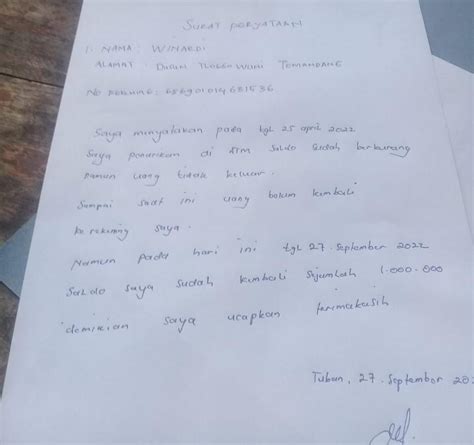 SURAT PERYATAAN
1. NAMA : WINARDI
ALAMAT : DUSUN TLOGO WUNI TEMANDANG
NO REKNING : 656901014681536
Saya minyatakan pada tgl 25 april 2022
Saya penarikan di ATM Saldo Sudah berkurang
namun uang tidak keluar.
Sampai saat ini uang belum kimbali
ke rekining saya.
Namun pada hari ini tgl 27. September 2022
Saldo saya sudah kimbali sijumlah 1.000.000
demikian saya ucapkan tarimakasih
Tuban, 27. September 202